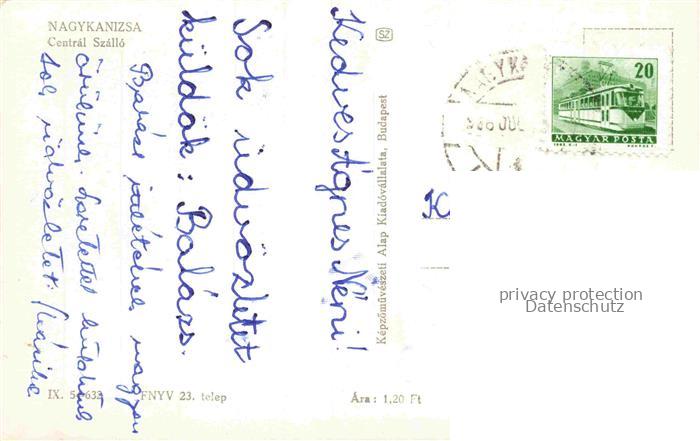 NAGYKANIZSA
Centrál Szálló
Kedves Ágnes Néni!
Sok üdvözletet
küldök: Balázs.
nagyon
örülünk. Szeretettel
sok üdvözletet: Márika
IX. 5 632
FNYV 23. telep
Ára: 1,20 Ft
Képzőművészeti Alap Kiadóvállalata, Budapest
SZ
NAGYK
966 JUL
20
MAGYAR POSTA
K
privacy protection
Datenschutz